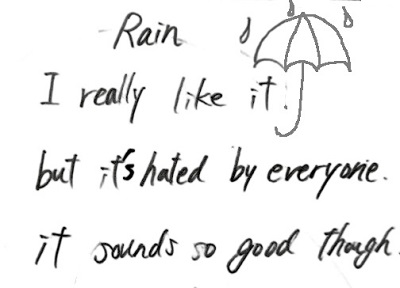 Rain
I really like it.
but it's hated by everyone.
it sounds so good though.